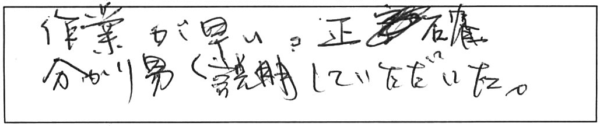 作業が早い。正確
分かり易く説明していただいた。